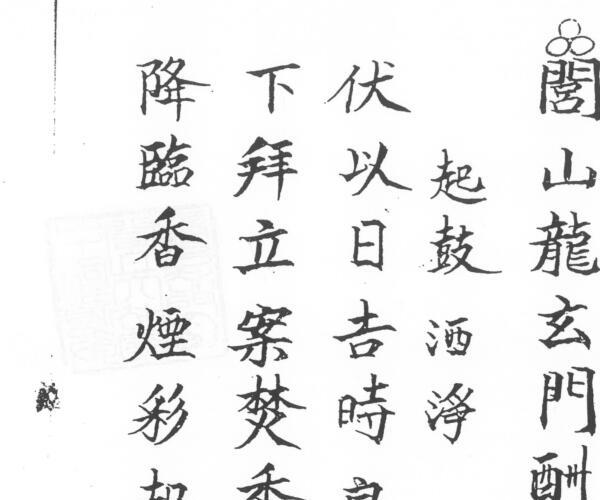 閭山龍玄門酬
起鼓洒淨
伏以日吉時良
下拜立案焚香
降臨香煙彩